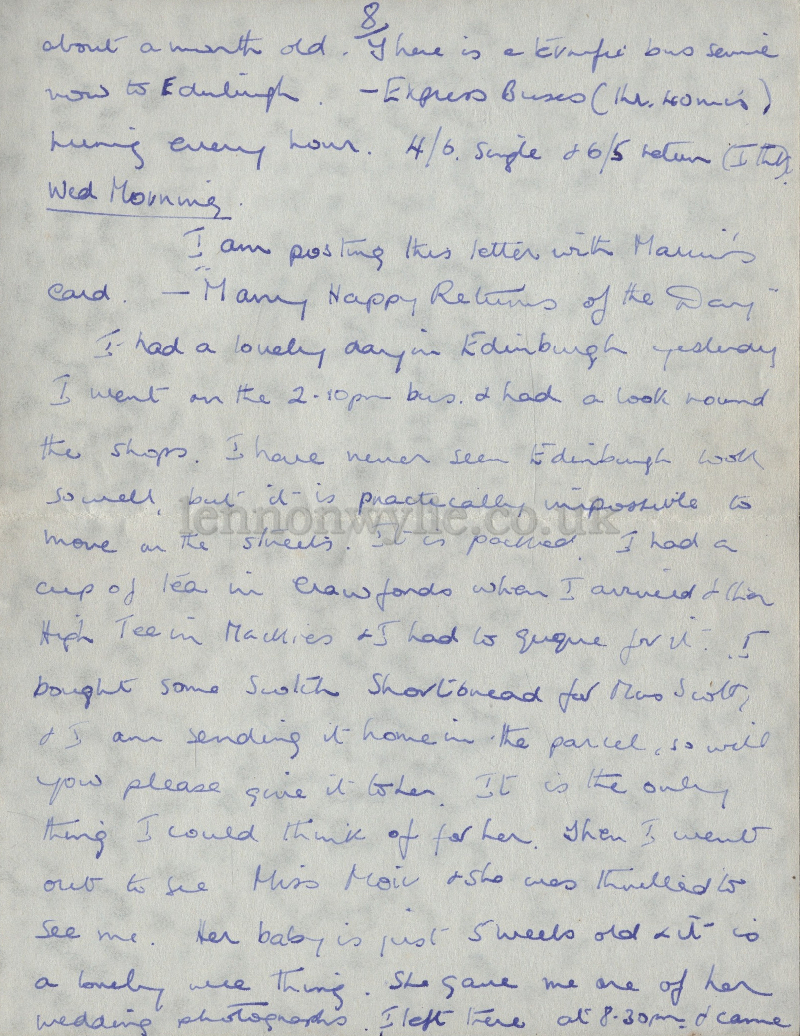 8
about a month old. There is a terrific bus service
now to Edinburgh. – Express Buses (
every hour. 4/6. single & 6/5 return (I think).
Wed Morning.
I am posting this letter with
card. — "Many Happy Returns of the Day"
I had a lovely day in Edinburgh yesterday
I went on the 2-10pm bus. & had a look round
the shops. I have never seen Edinburgh look
so well, but it is practically impossible to
lennonwylie.co.uk
move on the streets. It is packed. I had a
cup of tea in Crawfords when I arrived & then
High Tea in Mackies & I had to queque for it. I
bought some Scotch Shortbread for Miss Scott,
& I am sending it home in the parcel, so will
you please give it to her. It is the only
thing I could think of for her. Then I went
out to see Miss Moir & she was thrilled to
see me. Her baby is just 5 weeks old & it is
a lovely wee thing. She gave me one of her
wedding photographs. I left there at 8-30pm & came